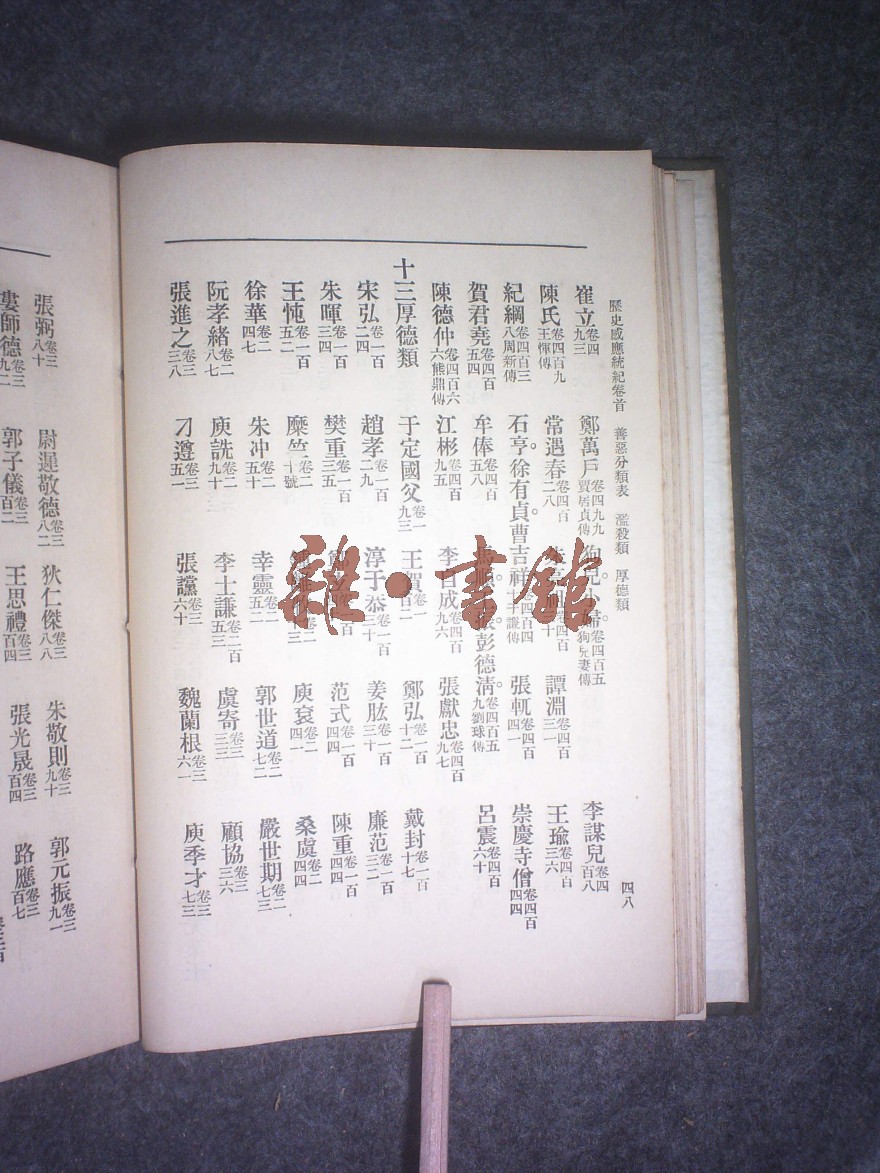 歷史感應統紀卷首　善惡分類表　濫殺類　厚德類　四八
崔立卷四九三　鄭萬戶卷四九九賈居貞傳　狗兒小婦卷四百五狗兒妻傳　李謀兒卷四百八
陳氏卷四百九王惲傳　常遇春卷四百二八　卷四百十　譚淵卷四百三一　王瑜卷四百三六
紀綱卷四百三八周新傳　石亨。徐有貞。曹吉祥卷四百四十于謙傳　張軏卷四百四一　崇慶寺僧卷四百四四
賀君堯卷四百五四　牟俸卷四百五八　彭德清。卷四百五九劉球傳　呂震卷四百六十
陳德仲卷四百六六熊鼎傳　江彬卷四百九五　李自成卷四百九六　張獻忠卷四百九七
十三厚德類　于定國父卷一九三　王賀卷一百二　鄭弘卷一百十二　戴封卷一百十七
宋弘卷一百二四　趙孝卷一百二九　淳于恭卷一百三十　姜肱卷一百三十　廉范卷一百三二
朱暉卷一百三四　樊重卷一百三五　卷一百　范式卷一百四四　陳重卷一百四四
王忳卷一百五二　糜竺卷二十號　庾袞卷二四一　桑虞卷二四四
徐華卷二四七　朱冲卷二五十　幸靈卷二五二　郭世道卷二七二　嚴世期卷二七三
阮孝緒卷二八七　庾詵卷二九十　李士謙卷二百五三　虞寄卷三三三　顧協卷三三六
張進之卷三三八　刁遵卷三五一　張讜卷三六十　魏蘭根卷三六一　庾季才卷三七三
張弼卷三八十　尉遲敬德卷三八二　狄仁傑卷三八八　朱敬則卷三九十　郭元振卷三九一
婁師德卷三九二　郭子儀卷三百二　王思禮卷三百四　張光晟卷三百四　路應卷三百七
雜·書館